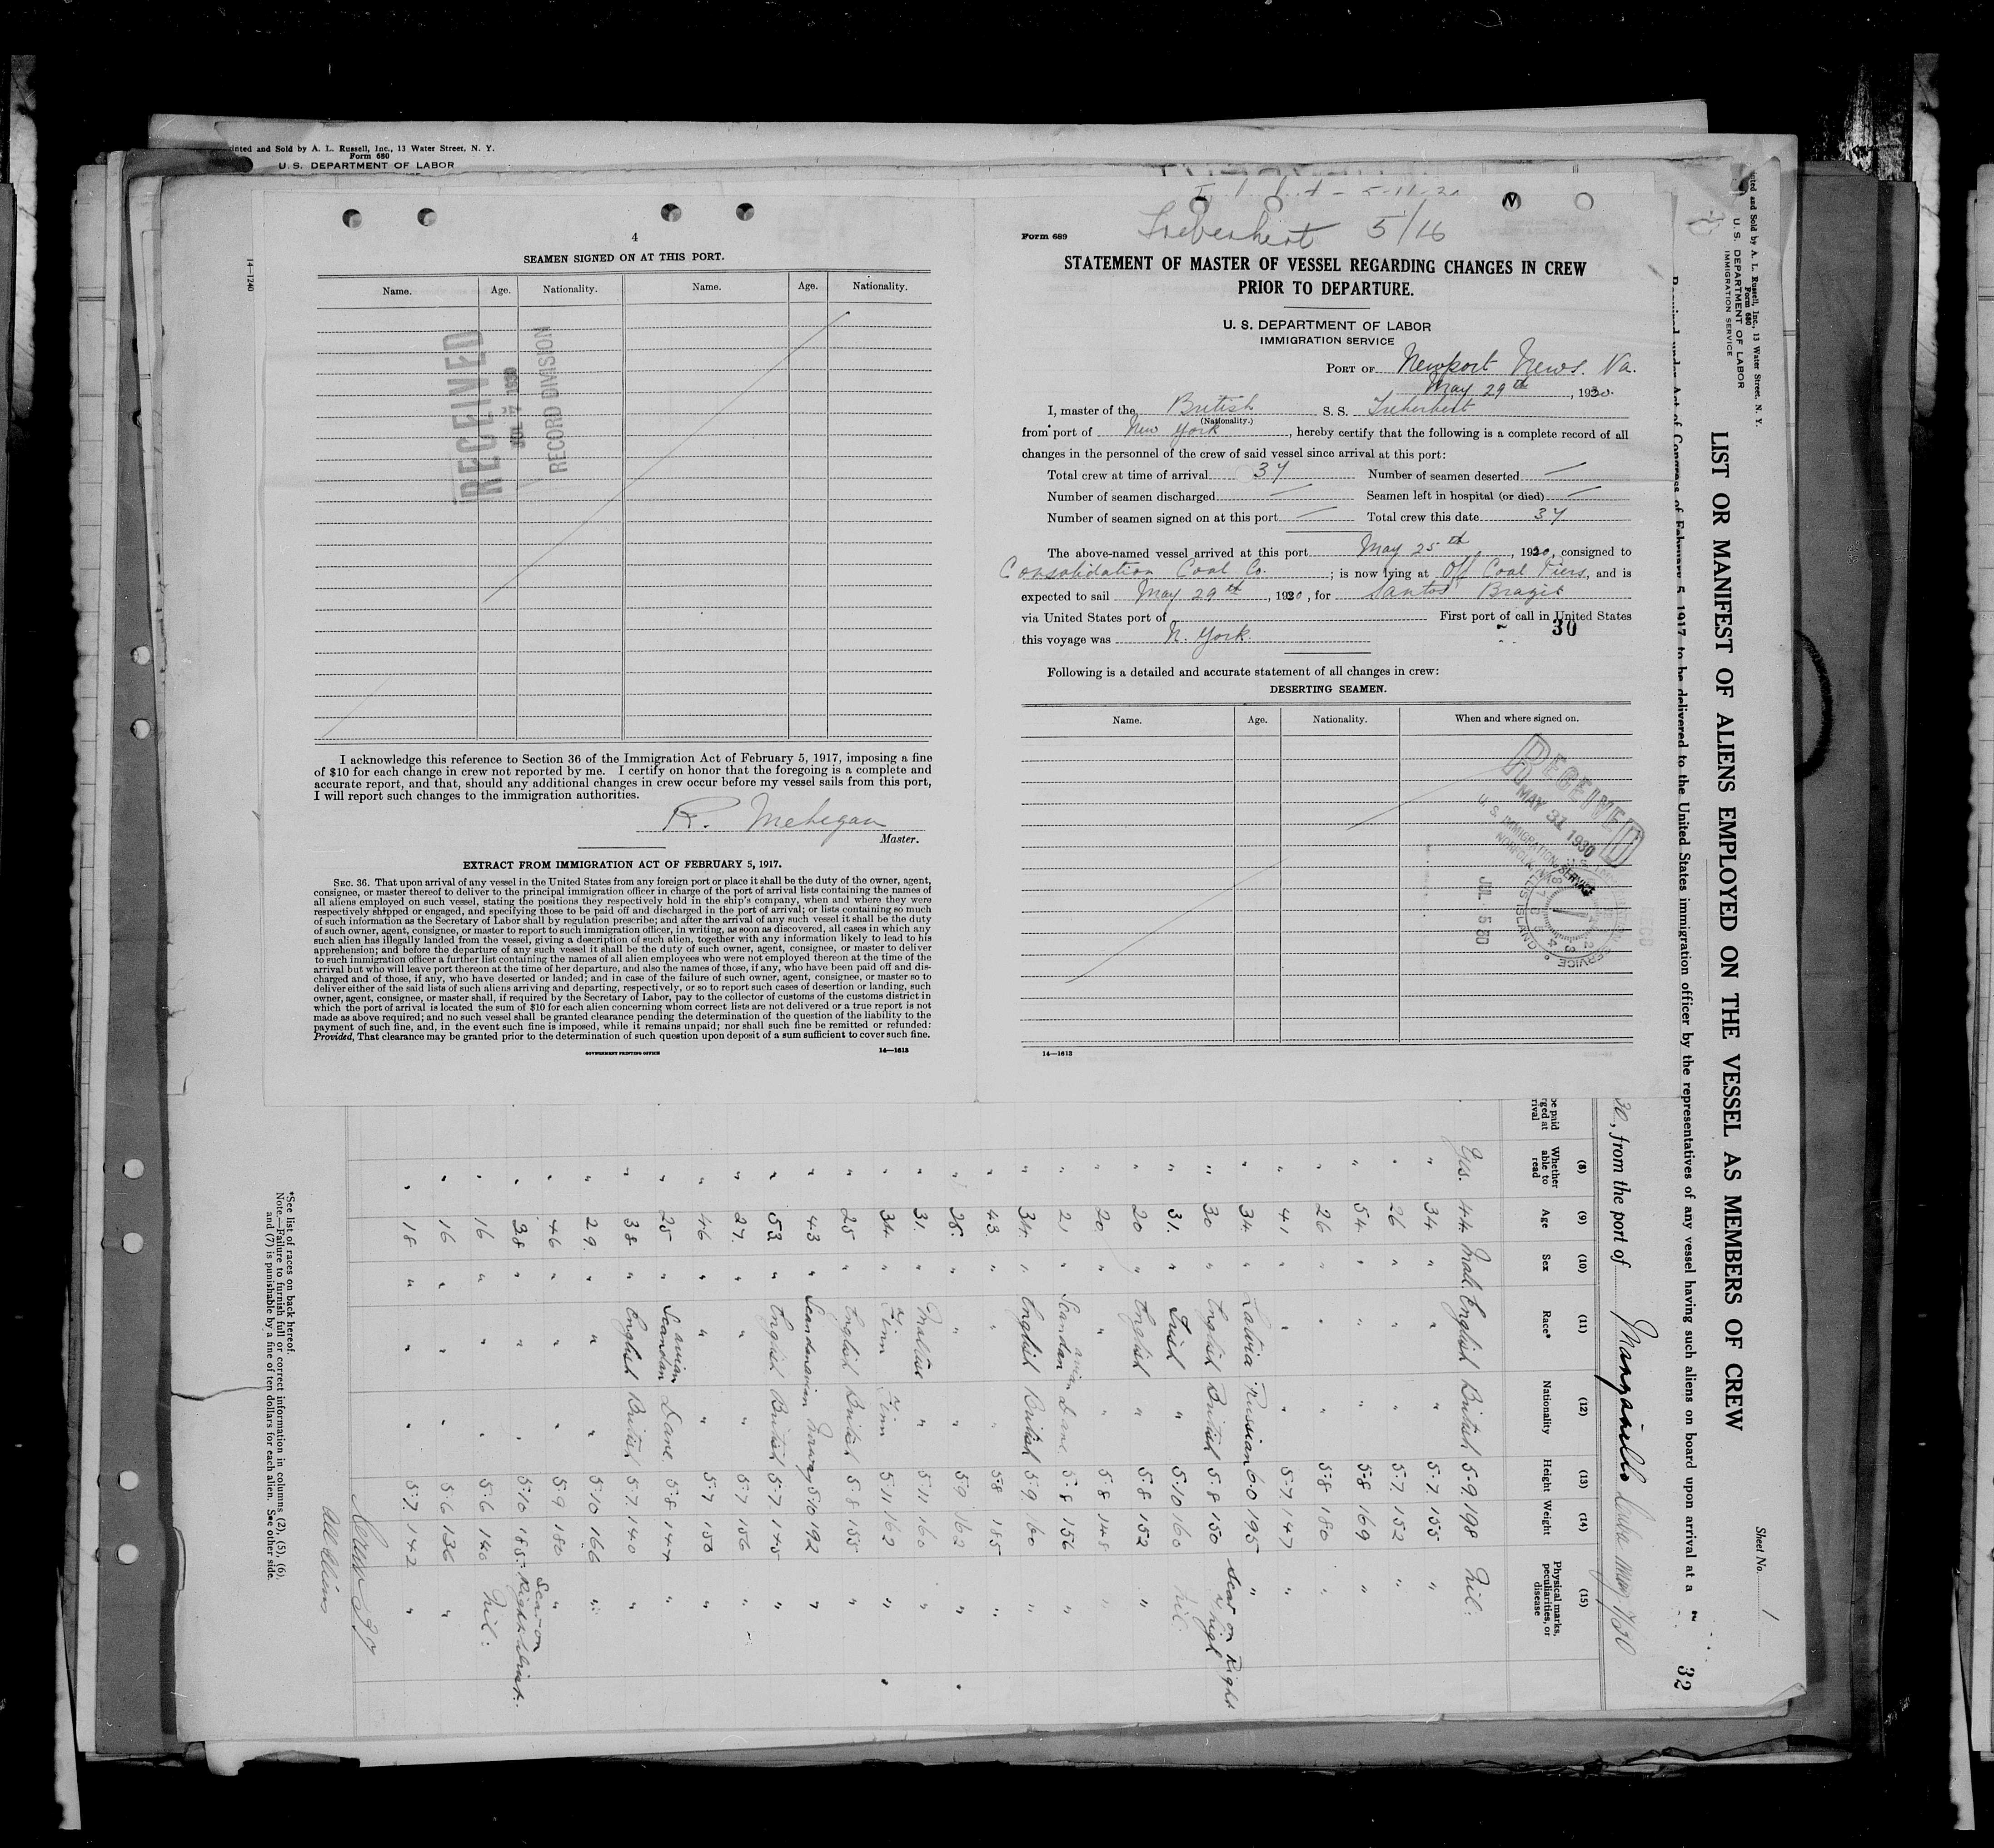 Printed and Sold by A. L. Russell, Inc., 13 Water Street, N. Y.
Form 680
U. S. DEPARTMENT OF LABOR
14—1240
4
SEAMEN SIGNED ON AT THIS PORT.
Name. Age. Nationality. Name. Age. Nationality.
RECEIVED
RECORD DIVISION
I acknowledge this reference to Section 36 of the Immigration Act of February 5, 1917, imposing a fine
of $10 for each change in crew not reported by me. I certify on honor that the foregoing is a complete and
accurate report, and that, should any additional changes in crew occur before my vessel sails from this port,
I will report such changes to the immigration authorities.
R. Mehegan
Master.
EXTRACT FROM IMMIGRATION ACT OF FEBRUARY 5, 1917.
SEC. 36. That upon arrival of any vessel in the United States from any foreign port or place it shall be the duty of the owner, agent,
consignee, or master thereof to deliver to the principal immigration officer in charge of the port of arrival lists containing the names of
all aliens employed on such vessel, stating the positions they respectively hold in the ship's company, when and where they were
respectively shipped or engaged, and specifying those to be paid off and discharged in the port of arrival; or lists containing so much
of such information as the Secretary of Labor shall by regulation prescribe; and after the arrival of any such vessel it shall be the duty
of such owner, agent, consignee, or master to report to such immigration officer, in writing, as soon as discovered, all cases in which any
such alien has illegally landed from the vessel, giving a description of such alien, together with any information likely to lead to his
apprehension; and before the departure of any such vessel it shall be the duty of such owner, agent, consignee, or master to deliver
to such immigration officer a further list containing the names of all alien employees who were not employed thereon at the time of the
arrival but who will leave port thereon at the time of her departure, and also the names of those, if any, who have been paid off and dis-
charged and of those, if any, who have deserted or landed; and in case of the failure of such owner, agent, consignee, or master so to
deliver either of the said lists of such aliens arriving and departing, respectively, or so to report such cases of desertion or landing, such
owner, agent, consignee, or master shall, if required by the Secretary of Labor, pay to the collector of customs of the customs district in
which the port of arrival is located the sum of $10 for each alien concerning whom correct lists are not delivered or a true report is not
made as above required; and no such vessel shall be granted clearance pending the determination of the question of the liability to the
payment of such fine, and, in the event such fine is imposed, while it remains unpaid; nor shall such fine be remitted or refunded:
Provided, That clearance may be granted prior to the determination of such question upon deposit of a sum sufficient to cover such fine.
GOVERNMENT PRINTING OFFICE 14—1613
Treherbert 5/16
Form 689
STATEMENT OF MASTER OF VESSEL REGARDING CHANGES IN CREW
PRIOR TO DEPARTURE.
U. S. DEPARTMENT OF LABOR
IMMIGRATION SERVICE
PORT OF Newport News. Va.
May 29th, 1930.
I, master of the British S. S. Treherbert
(Nationality.)
from port of New York, hereby certify that the following is a complete record of all
changes in the personnel of the crew of said vessel since arrival at this port:
Total crew at time of arrival 37 Number of seamen deserted —
Number of seamen discharged — Seamen left in hospital (or died) —
Number of seamen signed on at this port — Total crew this date 37
The above-named vessel arrived at this port May 25th, 1930, consigned to
Consolidation Coal Co. ; is now lying at Off Coal Piers, and is
expected to sail May 29th, 1930, for Santos Brazil
via United States port of First port of call in United States
30
this voyage was N. York.
Following is a detailed and accurate statement of all changes in crew:
DESERTING SEAMEN.
Name. Age. Nationality. When and where signed on.
RECEIVED
MAY 31 1930
U. S. IMMIGRATION SERVICE
NORFOLK, VA.
14—1613
Printed and Sold by A. L. Russell, Inc., 13 Water Street, N. Y.
Form 680
U. S. DEPARTMENT OF LABOR
IMMIGRATION SERVICE
Sheet No. 1
LIST OR MANIFEST OF ALIENS EMPLOYED ON THE VESSEL AS MEMBERS OF CREW
Required under Act of Congress of February 5, 1917 to be delivered to the United States immigration officer by the representatives of any vessel having such aliens on board upon arrival at a
32
30, from the port of Manzanillo Cuba May 7/30
(8) (9) (10) (11) (12) (13) (14) (15)
Whether able to read Age Sex Race* Nationality Height Weight Physical marks, peculiarities, or disease
Yes. 44 Male English British 5-9 198 Nil.
" 34 " " " 5-7 155 "
" 26 " " " 5-7 152 "
" 54 " " " 5-8 169 "
" 26 " " " 5-8 180 "
" 41 " " " 5-7 147 "
" 34 " Latvia Russian 6-0 195 "
" 30 " English British 5-8 150 Scar on Right Thigh
" 31. " Irish " 5-10 160 Nil.
" 20 " English " 5-8 152 "
" 20 " " " 5-8 148 "
" 21 " Scandanavian Dane 5-8 156 "
" 34. " English British 5-9 160 "
" 43. " " " 5-8 185 "
" 28. " " " 5-9 162 "
" 31. " Maltese " 5-11 160 "
" 34. " Finn Finn 5-11 162 "
" 25 " English British 5-8 155 "
" 43 " Scandanavian Norway 5-10 192 "
" 53 " English British 5-7 145 "
" 27. " " " 5-7 156 "
" 46 " " " 5-7 150 "
" 25 " Scandanavian Dane 5-8 144 "
" 38 " English British 5-7 140 "
" 29. " " " 5-10 166 "
" 46 " " " 5-9 180 "
" 38 " " " 5-10 185. Scar on Right Wrist.
" 16 " " " 5-6 140 Nil.
" 16 " " " 5-6 136 "
" 18 " " " 5-7. 142 "
Crew 37
All Aliens
*See list of races on back hereof.
Note.—Failure to furnish full or correct information in columns (2), (5), (6),
and (7) is punishable by a fine of ten dollars for each alien. See other side.